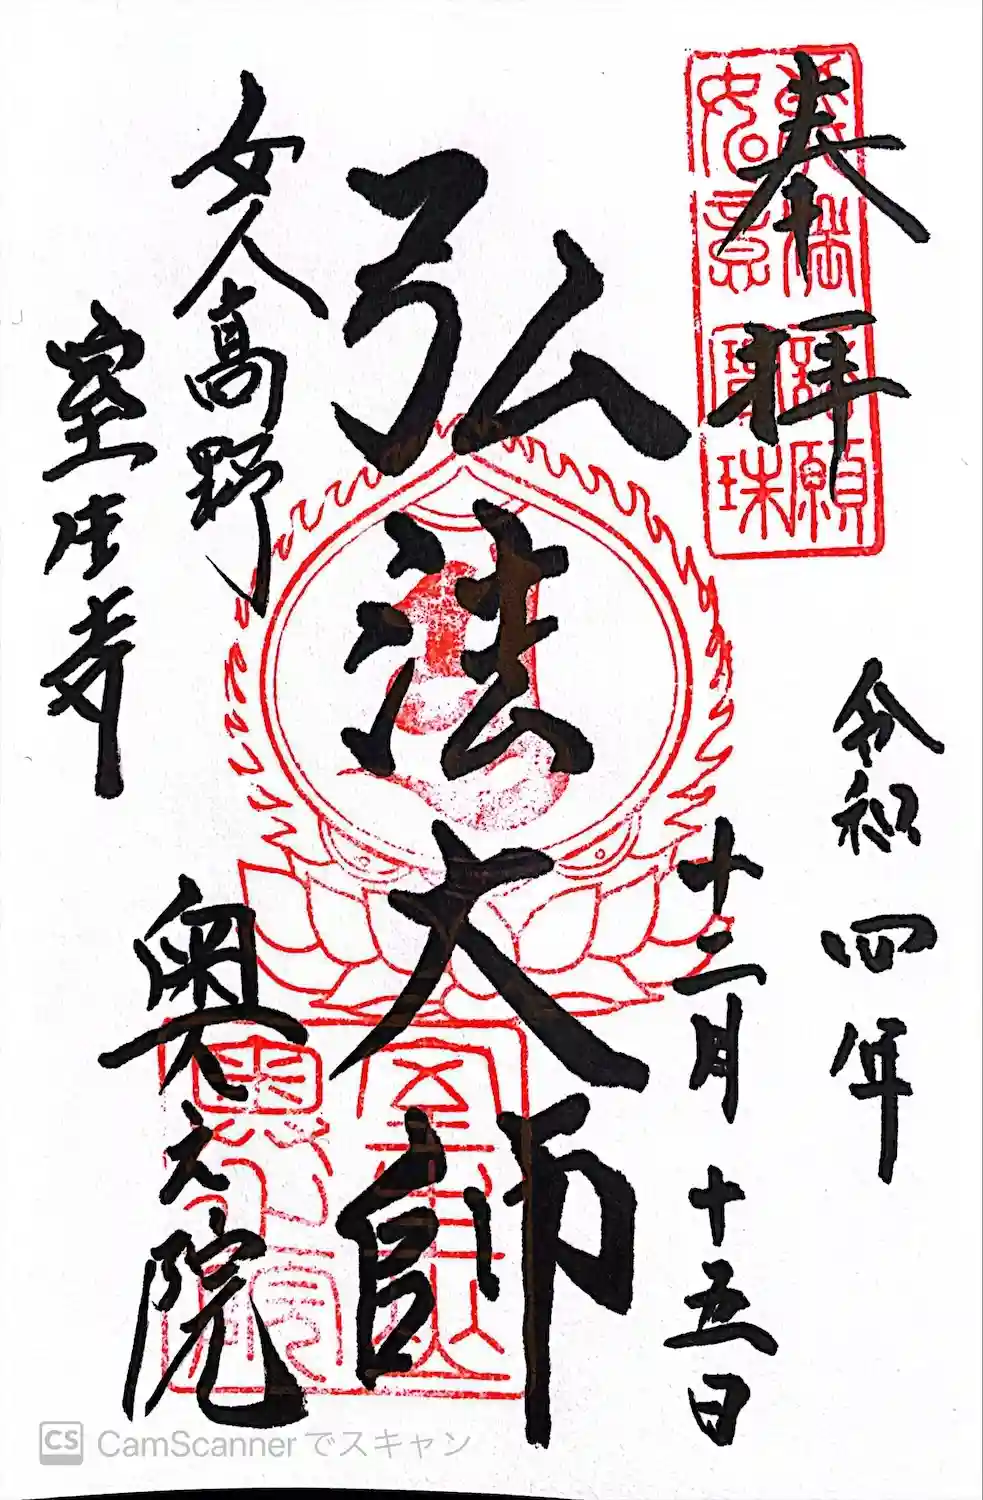 奉拝
令和四年
十二月十五日
弘法大師
女人高野
室生寺
奥之院
如意
宝珠
CS CamScannerでスキャン